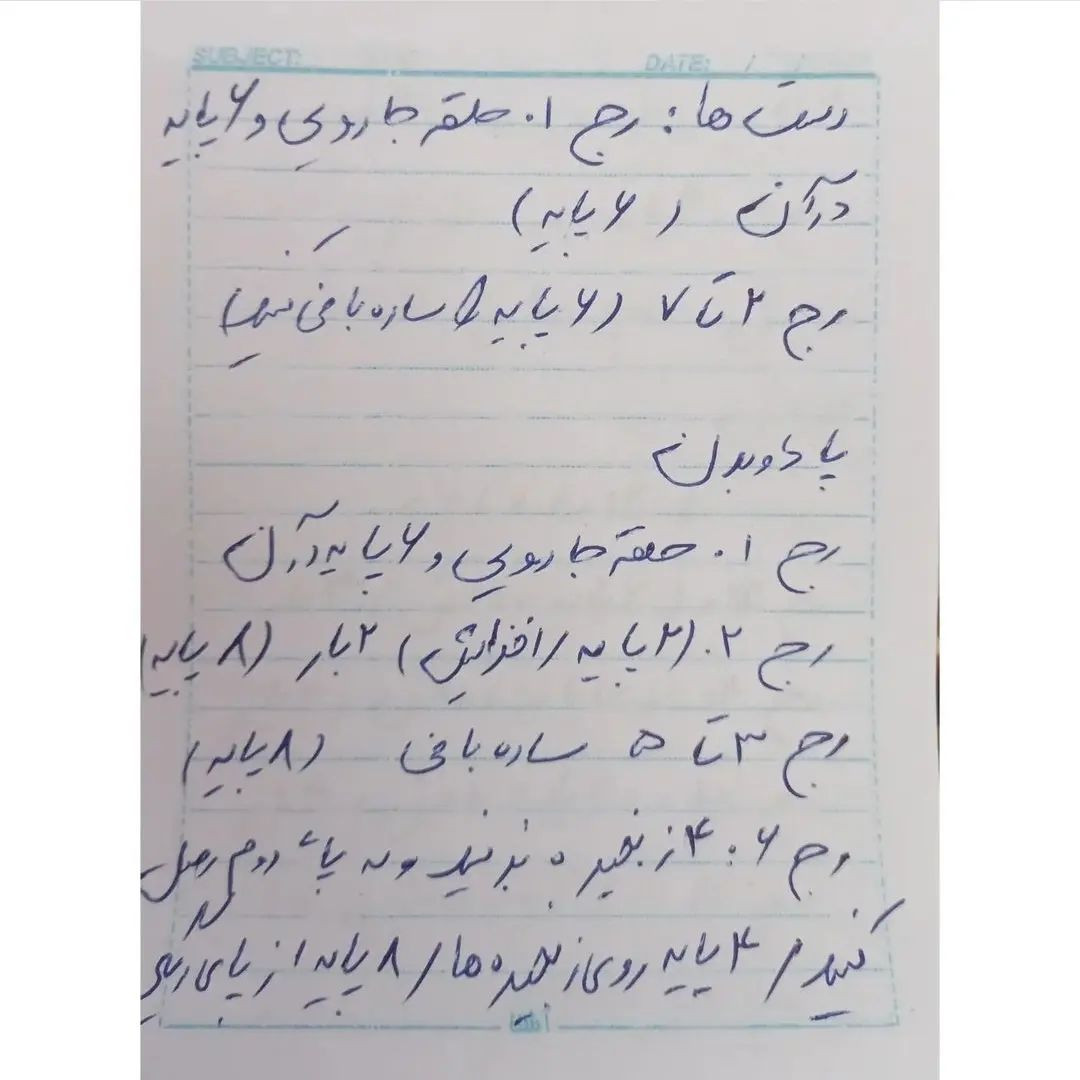 SUBJECT: DATE: / /
دست ها: رج ۱. حلقه جادویی و ۶ پایه
درآن (۶ پایه)
رج ۲ تا ۷ (۶ پایه / ساده بافی کنید)
پا و بدن
رج ۱. حلقه جادویی و ۶ پایه درآن
رج ۲. (۲ پایه / افزایش) ۲ بار (۸ پایه)
رج ۳ تا ۵ ساده بافی (۸ پایه)
رج ۶: ۴ زنجیره بزنید و به پای دوم وصل
کنید / ۴ پایه روی زنجیره ها / ۸ پایه از پای